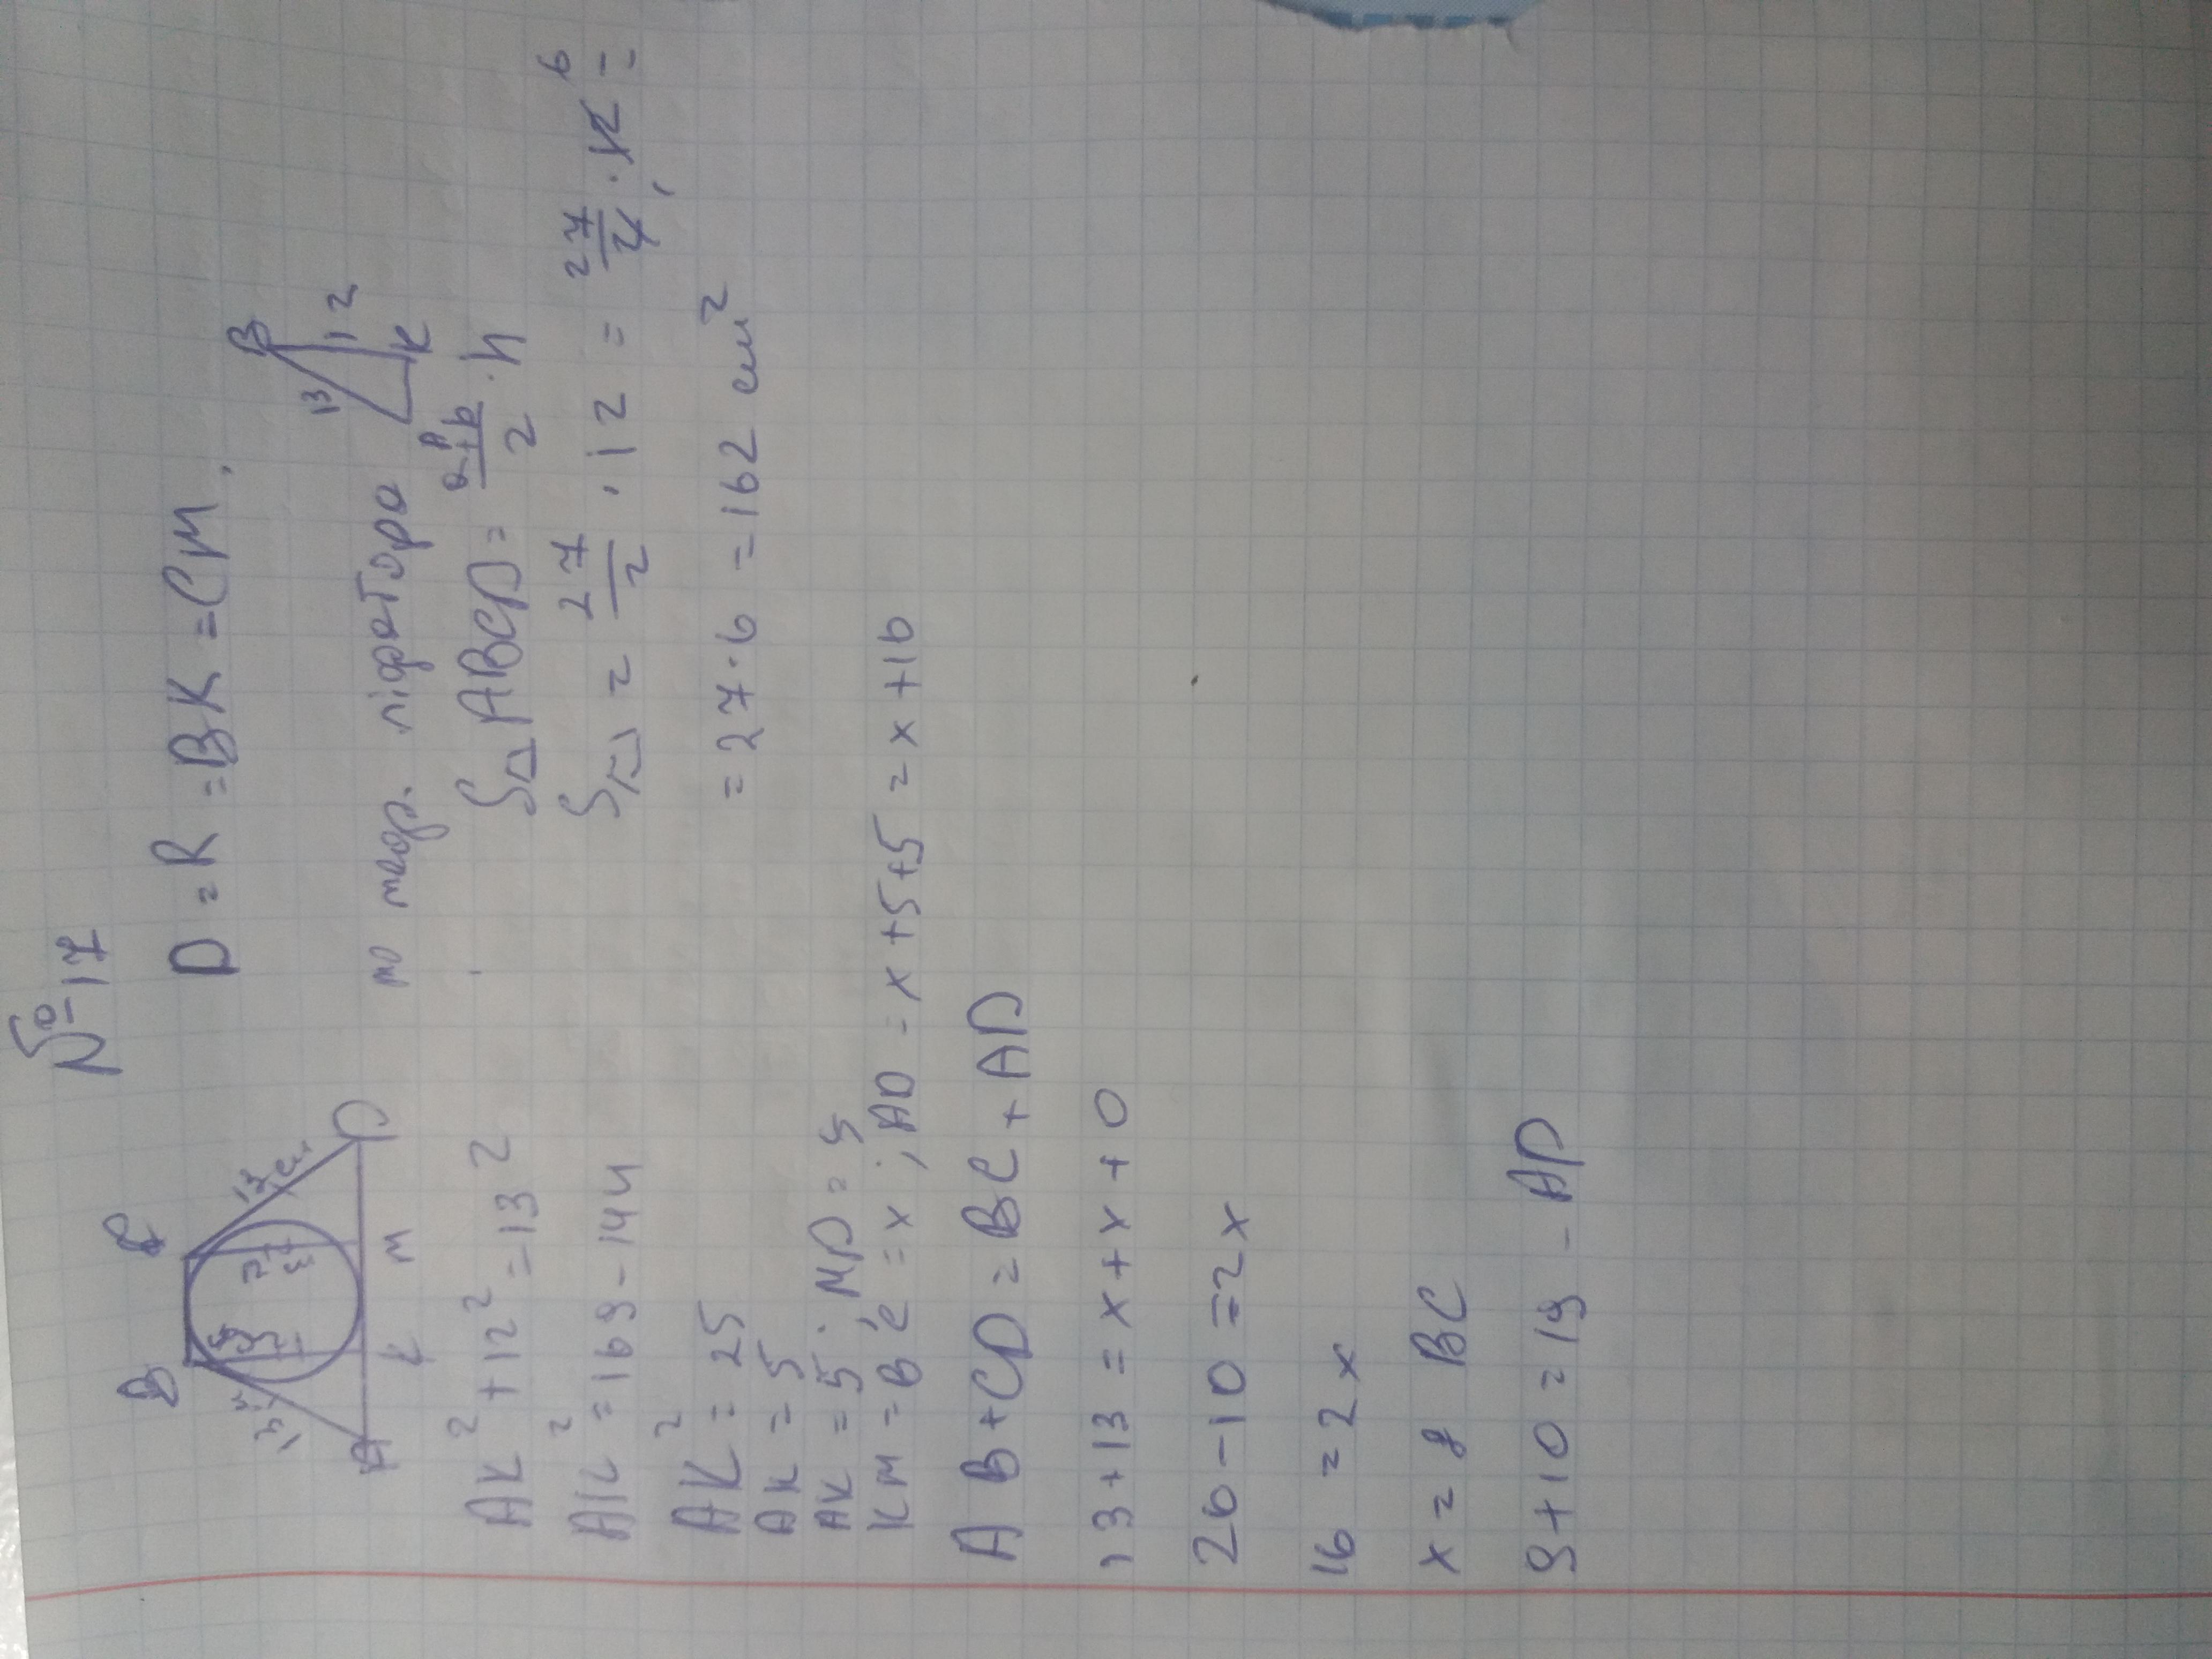 № 17
B C
13 12 12 13 см
A K M D
D = R = BK = CM.
по теор. піфагора
B
13 12
K
AK² + 12² = 13²
AK² = 169 - 144
AK² = 25
AK = 5
AK = 5; MD = 5
KM = BC = x; AD = x + 5 + 5 = 2x + 10
AB + CD = BC + AD
13 + 13 = x + x + 0
26 - 10 = 2x
16 = 2x
x = 8 BC
9 + 10 = 19 - AD
S ABCD = a+b/2 · h
S = 27/2 · 12 = 27/2 · 12 6 =
= 27 · 6 = 162 см²